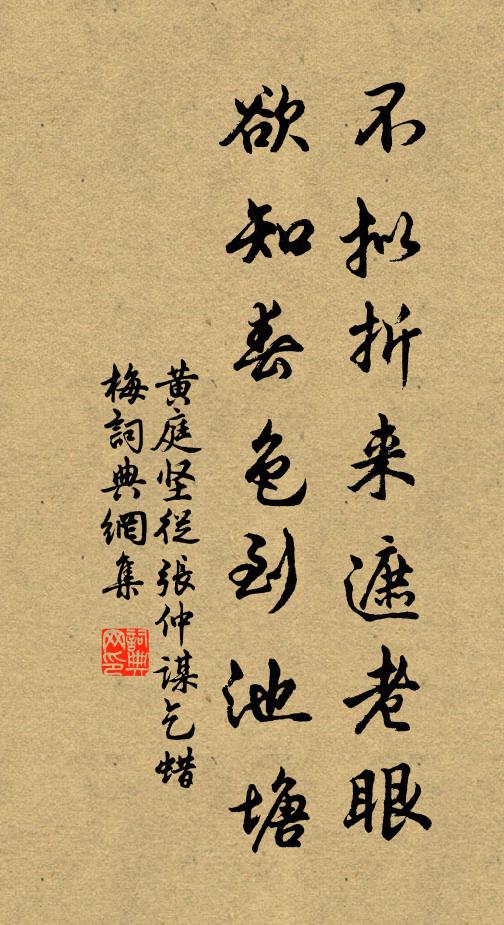 不拟折来遮老眼
欲知春色到池塘
黄庭坚從張仲谋乞蜡
梅詞典網集
詞典
网印